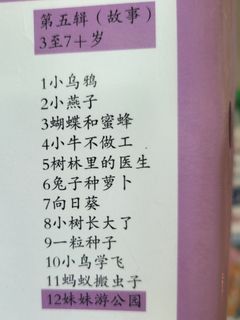 第五辑（故事）
3至7+岁
1小乌鸦
2小燕子
3蝴蝶和蜜蜂
4小牛不做工
5树林里的医生
6兔子种萝卜
7向日葵
8小树长大了
9一粒种子
10小鸟学飞
11蚂蚁搬虫子
12妹妹游公园